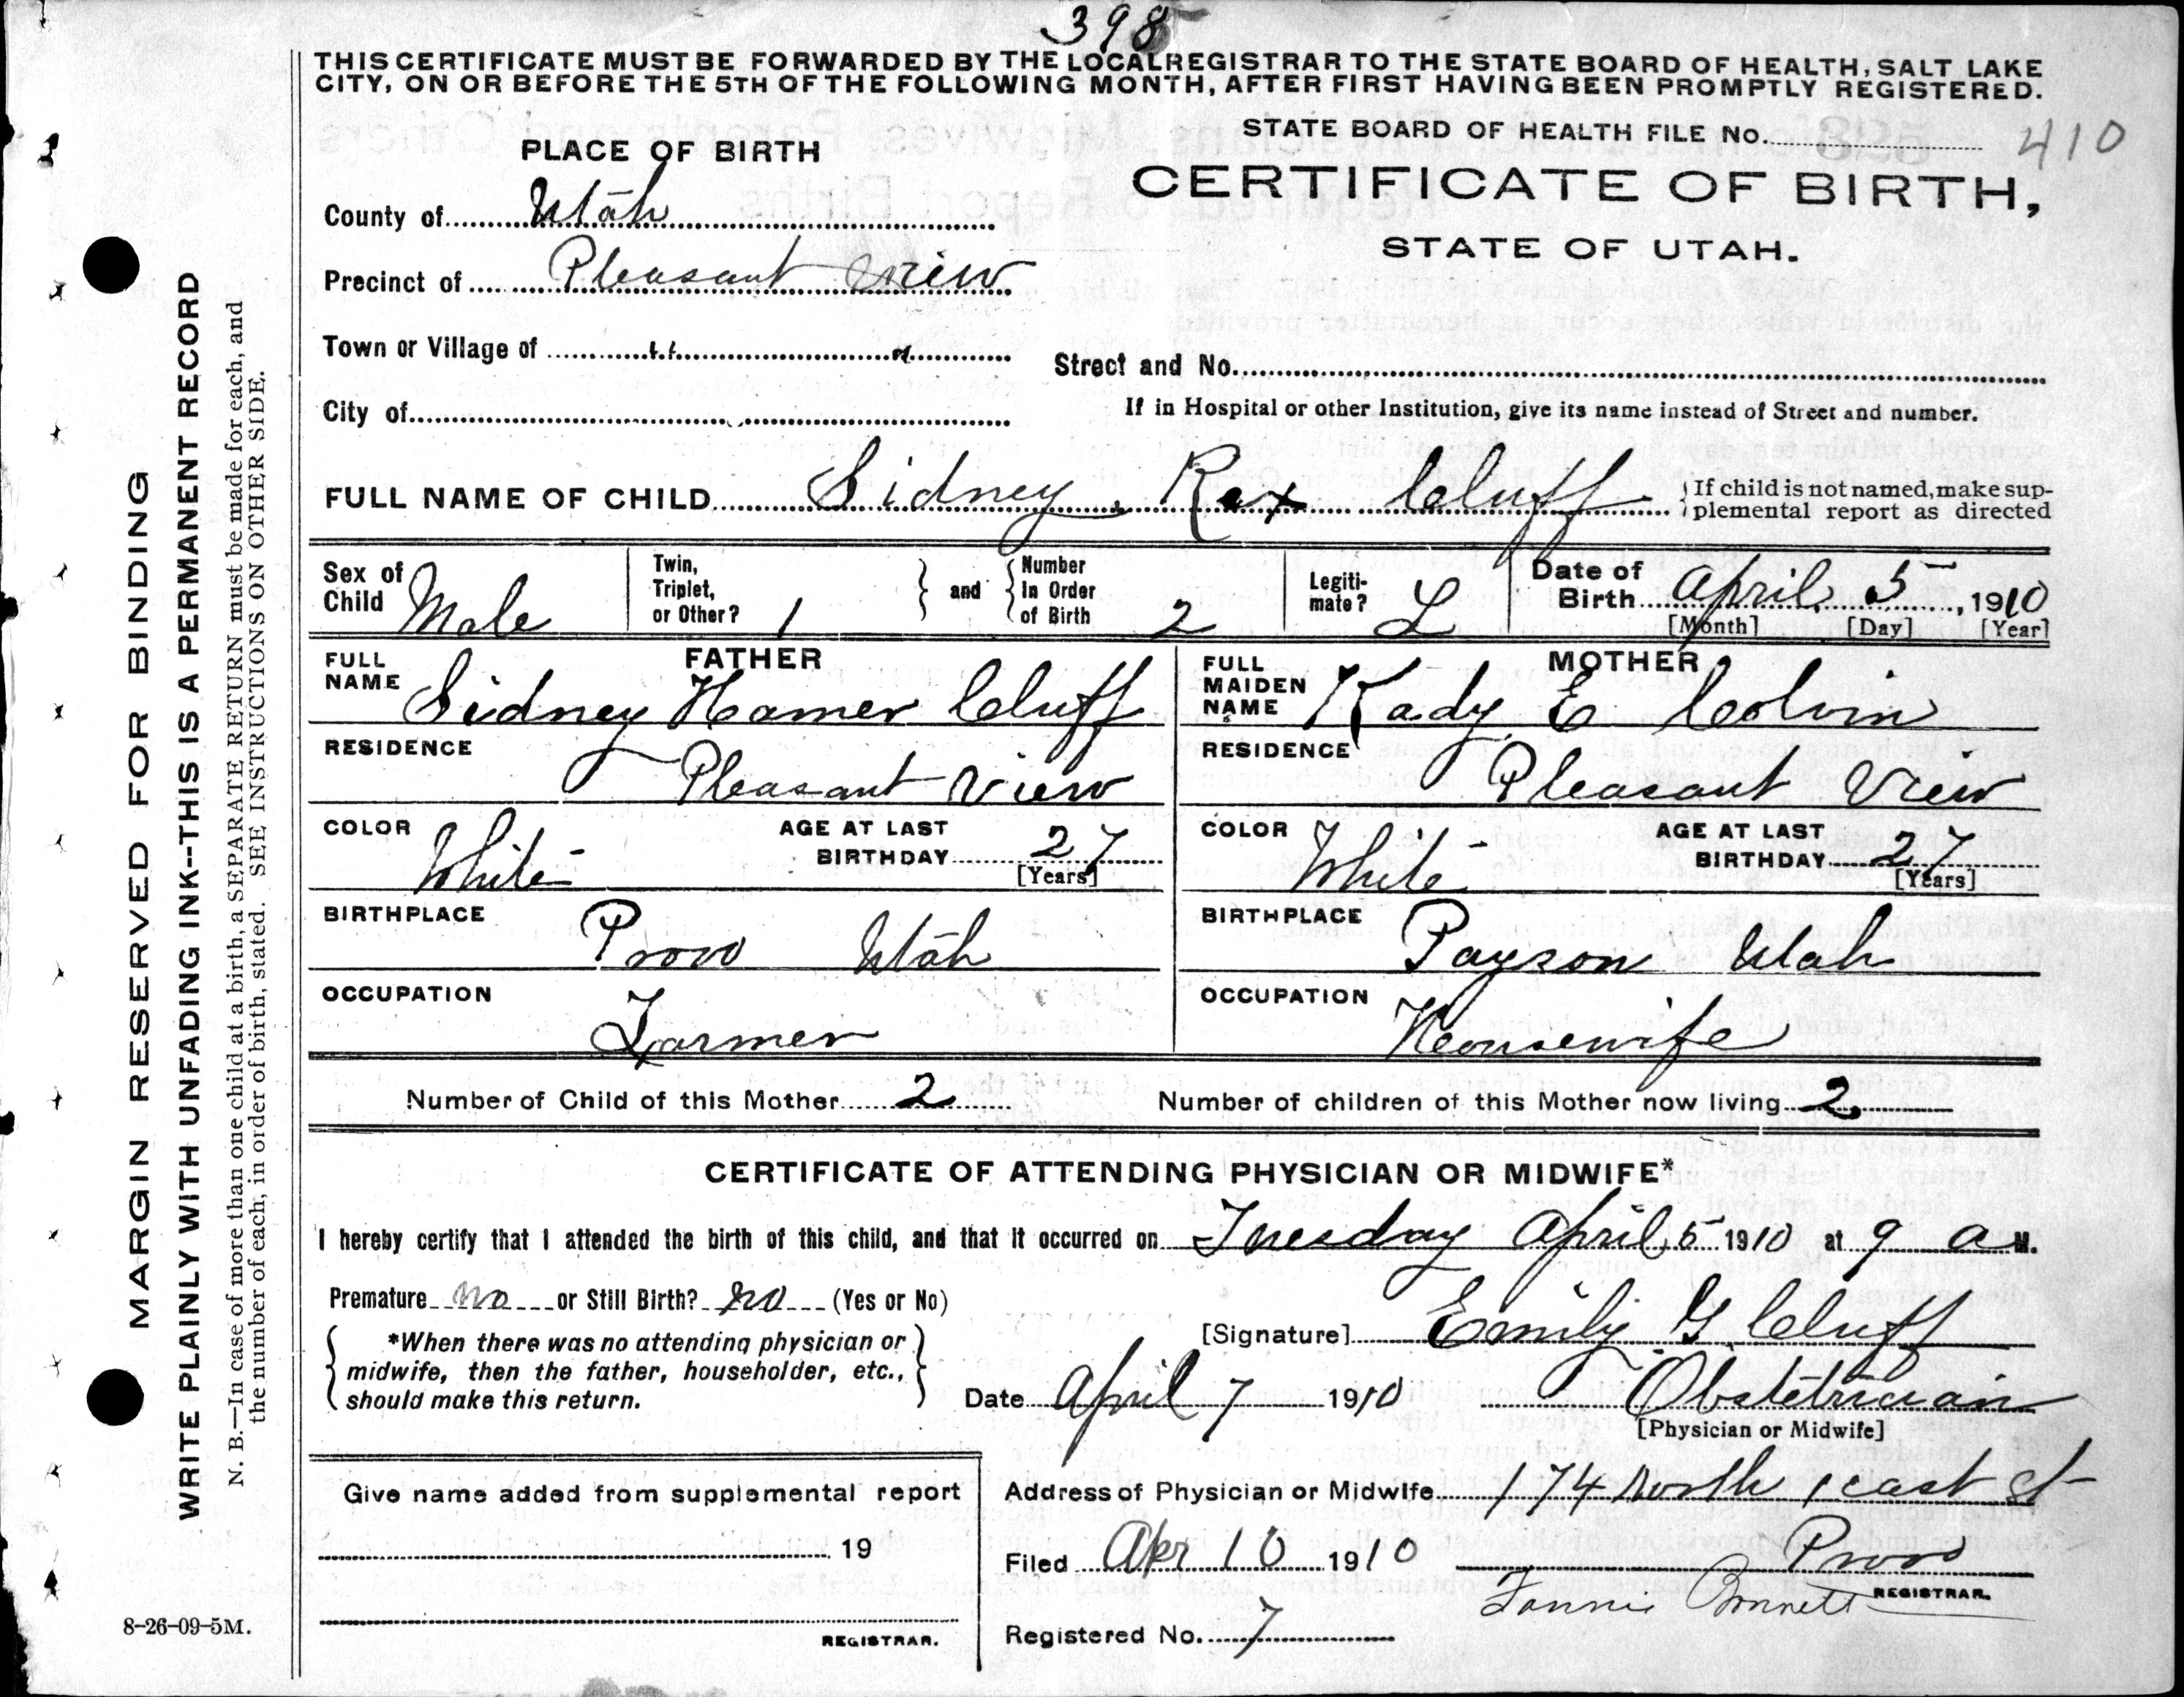 398
THIS CERTIFICATE MUST BE FORWARDED BY THE LOCAL REGISTRAR TO THE STATE BOARD OF HEALTH, SALT LAKE
CITY, ON OR BEFORE THE 5TH OF THE FOLLOWING MONTH, AFTER FIRST HAVING BEEN PROMPTLY REGISTERED.
STATE BOARD OF HEALTH FILE No. 410
PLACE OF BIRTH
CERTIFICATE OF BIRTH,
STATE OF UTAH.
County of Utah
Precinct of Pleasant View
Town or Village of " "
Street and No.
City of
If in Hospital or other Institution, give its name instead of Street and number.
FULL NAME OF CHILD Sidney Rex Cluff
If child is not named, make sup-
plemental report as directed
Sex of Child Male
Twin, Triplet, or Other? 1
and
Number In Order of Birth 2
Legiti-mate? L
Date of Birth April 5, 1910
[Month] [Day] [Year]
FATHER
FULL NAME Sidney Hamer Cluff
RESIDENCE Pleasant View
COLOR White
AGE AT LAST BIRTHDAY 27
[Years]
BIRTHPLACE Provo Utah
OCCUPATION Farmer
MOTHER
FULL MAIDEN NAME Kady E Colvin
RESIDENCE Pleasant View
COLOR White
AGE AT LAST BIRTHDAY 27
[Years]
BIRTHPLACE Payson Utah
OCCUPATION Housewife
Number of Child of this Mother 2
Number of children of this Mother now living 2
CERTIFICATE OF ATTENDING PHYSICIAN OR MIDWIFE*
I hereby certify that I attended the birth of this child, and that it occurred on Tuesday April 5 1910 at 9 a M.
Premature no or Still Birth? no (Yes or No)
*When there was no attending physician or
midwife, then the father, householder, etc.,
should make this return.
[Signature] Emily G Cluff
Date April 7 1910
Obstetrician
[Physician or Midwife]
Give name added from supplemental report
19
REGISTRAR.
Address of Physician or Midwife 174 North 1 east st
Provo
Filed Apr 10 1910
Fannie Bonnett
REGISTRAR.
Registered No. 7
8-26-09-5M.
MARGIN RESERVED FOR BINDING
WRITE PLAINLY WITH UNFADING INK--THIS IS A PERMANENT RECORD
N. B.—In case of more than one child at a birth, a SEPARATE RETURN must be made for each, and
the number of each, in order of birth, stated. SEE INSTRUCTIONS ON OTHER SIDE.